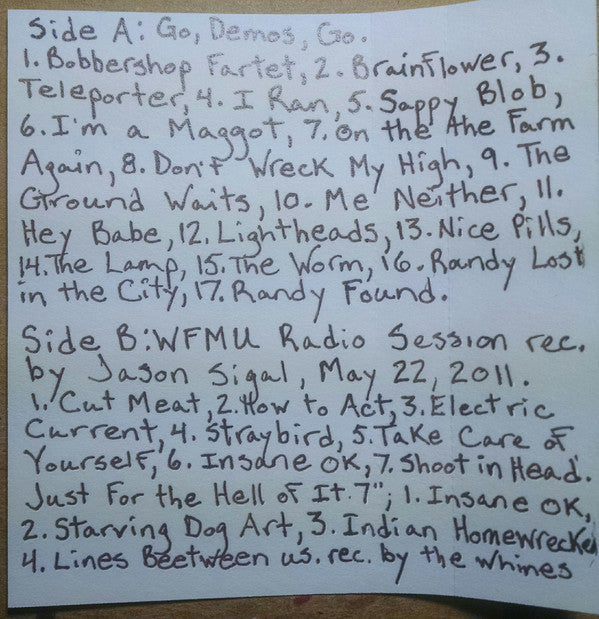 Side A: Go, Demos, Go.
1. Bobbershop Fartet, 2. Brainflower, 3.
Teleporter, 4. I Ran, 5. Sappy Blob,
6. I'm a Maggot, 7. On the the Farm
Again, 8. Don't Wreck My High, 9. The
Ground Waits, 10. Me Neither, 11.
Hey Babe, 12. Lightheads, 13. Nice Pills,
14. The Lamp, 15. The Worm, 16. Randy Lost
in the City, 17. Randy Found.
Side B: WFMU Radio Session rec.
by Jason Sigal, May 22, 2011.
1. Cut Meat, 2. How to Act, 3. Electric
Current, 4. Straybird, 5. Take Care of
Yourself, 6. Insane OK, 7. Shoot in Head.
Just For the Hell of It 7"; 1. Insane OK,
2. Starving Dog Art, 3. Indian Homewrecker
4. Lines Beetween us. rec. by the Whines